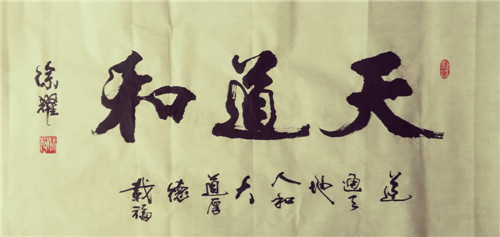 天道和
道通天地人和大道厚德載福
徐耀